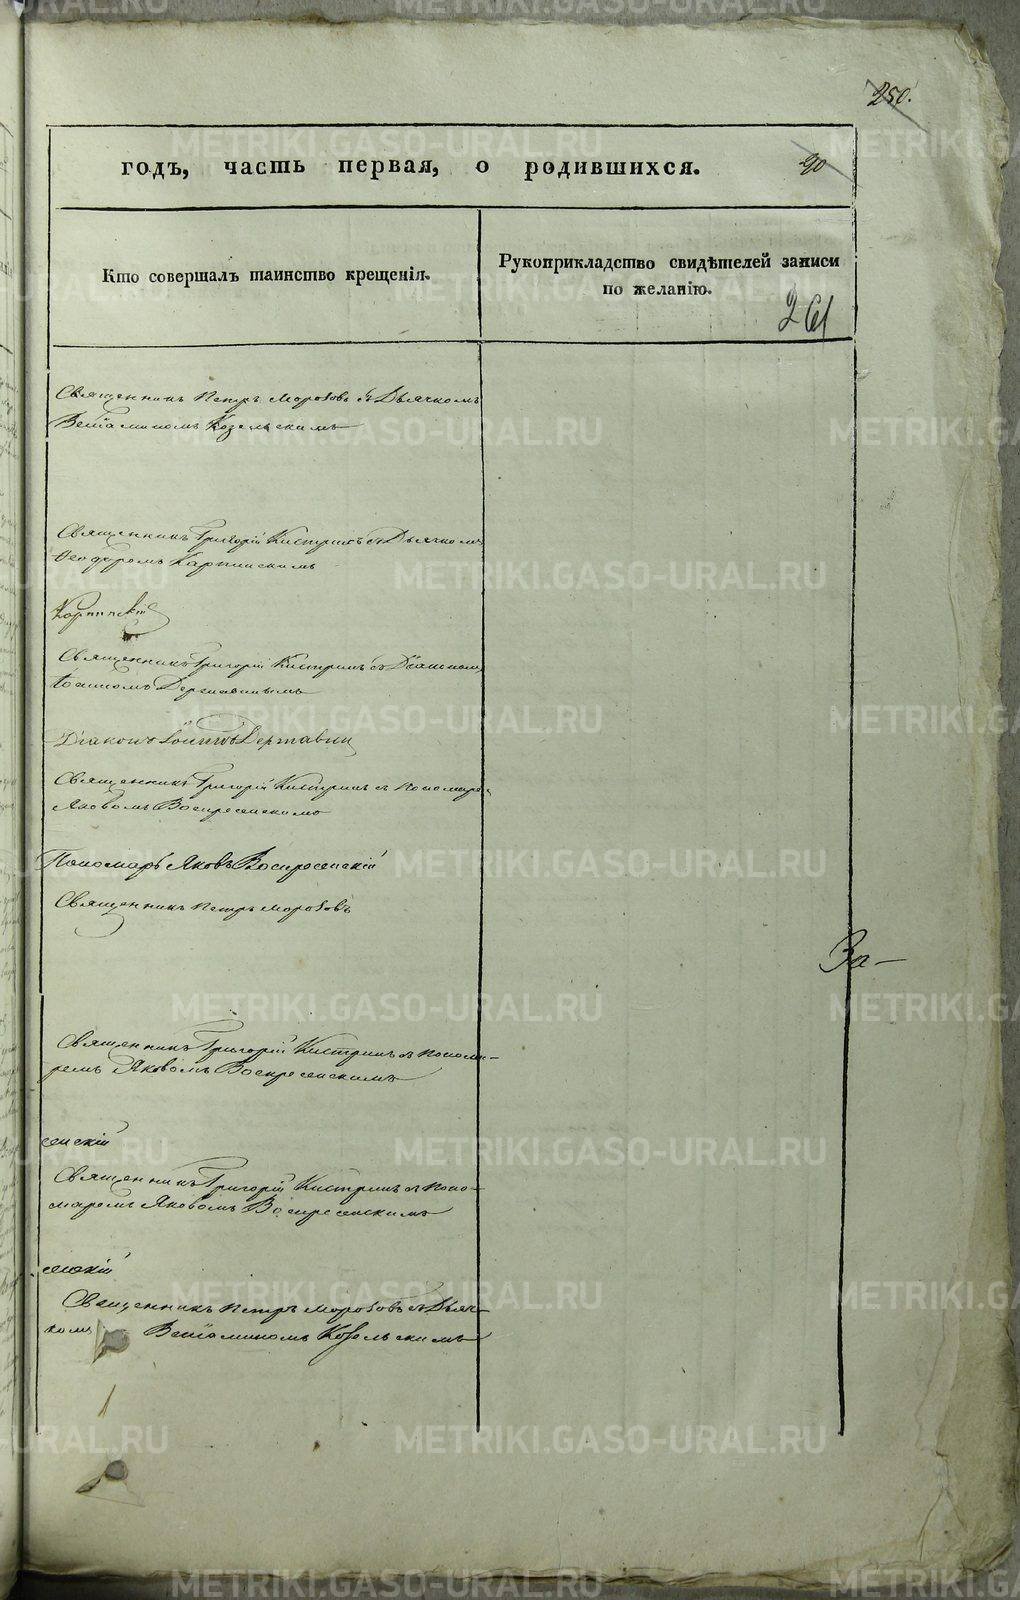 250.
годъ, часть первая, о родившихся.
90
Кто совершалъ таинство крещенія.
Рукоприкладство свидѣтелей записи
по желанію.
261
Священникъ Петръ Морозовъ съ Дьячкомъ
Веніаминомъ Козельскимъ
Священникъ Григорій Кистринъ съ Дьячкомъ
Ѳеодоромъ Карпинскимъ
Карпинскій
Священникъ Григорій Кистринъ съ Діакономъ
Іоанномъ Державинымъ
Діаконъ Іоаннъ Державинъ
Священникъ Григорій Кистринъ съ Пономаре
Яковомъ Воскресенскимъ
Пономарь Яковъ Воскресенскій
Священникъ Петръ Морозовъ
За-
Священникъ Григорій Кистринъ съ Понома-
ремъ Яковомъ Воскресенскимъ
сенскій
Священникъ Григорій Кистринъ съ Поно-
маремъ Яковомъ Воскресенскимъ
сенскій
Священникъ Петръ Морозовъ съ Дьяч-
комъ Веніаминомъ Козельскимъ
METRIKI.GASO-URAL.RU